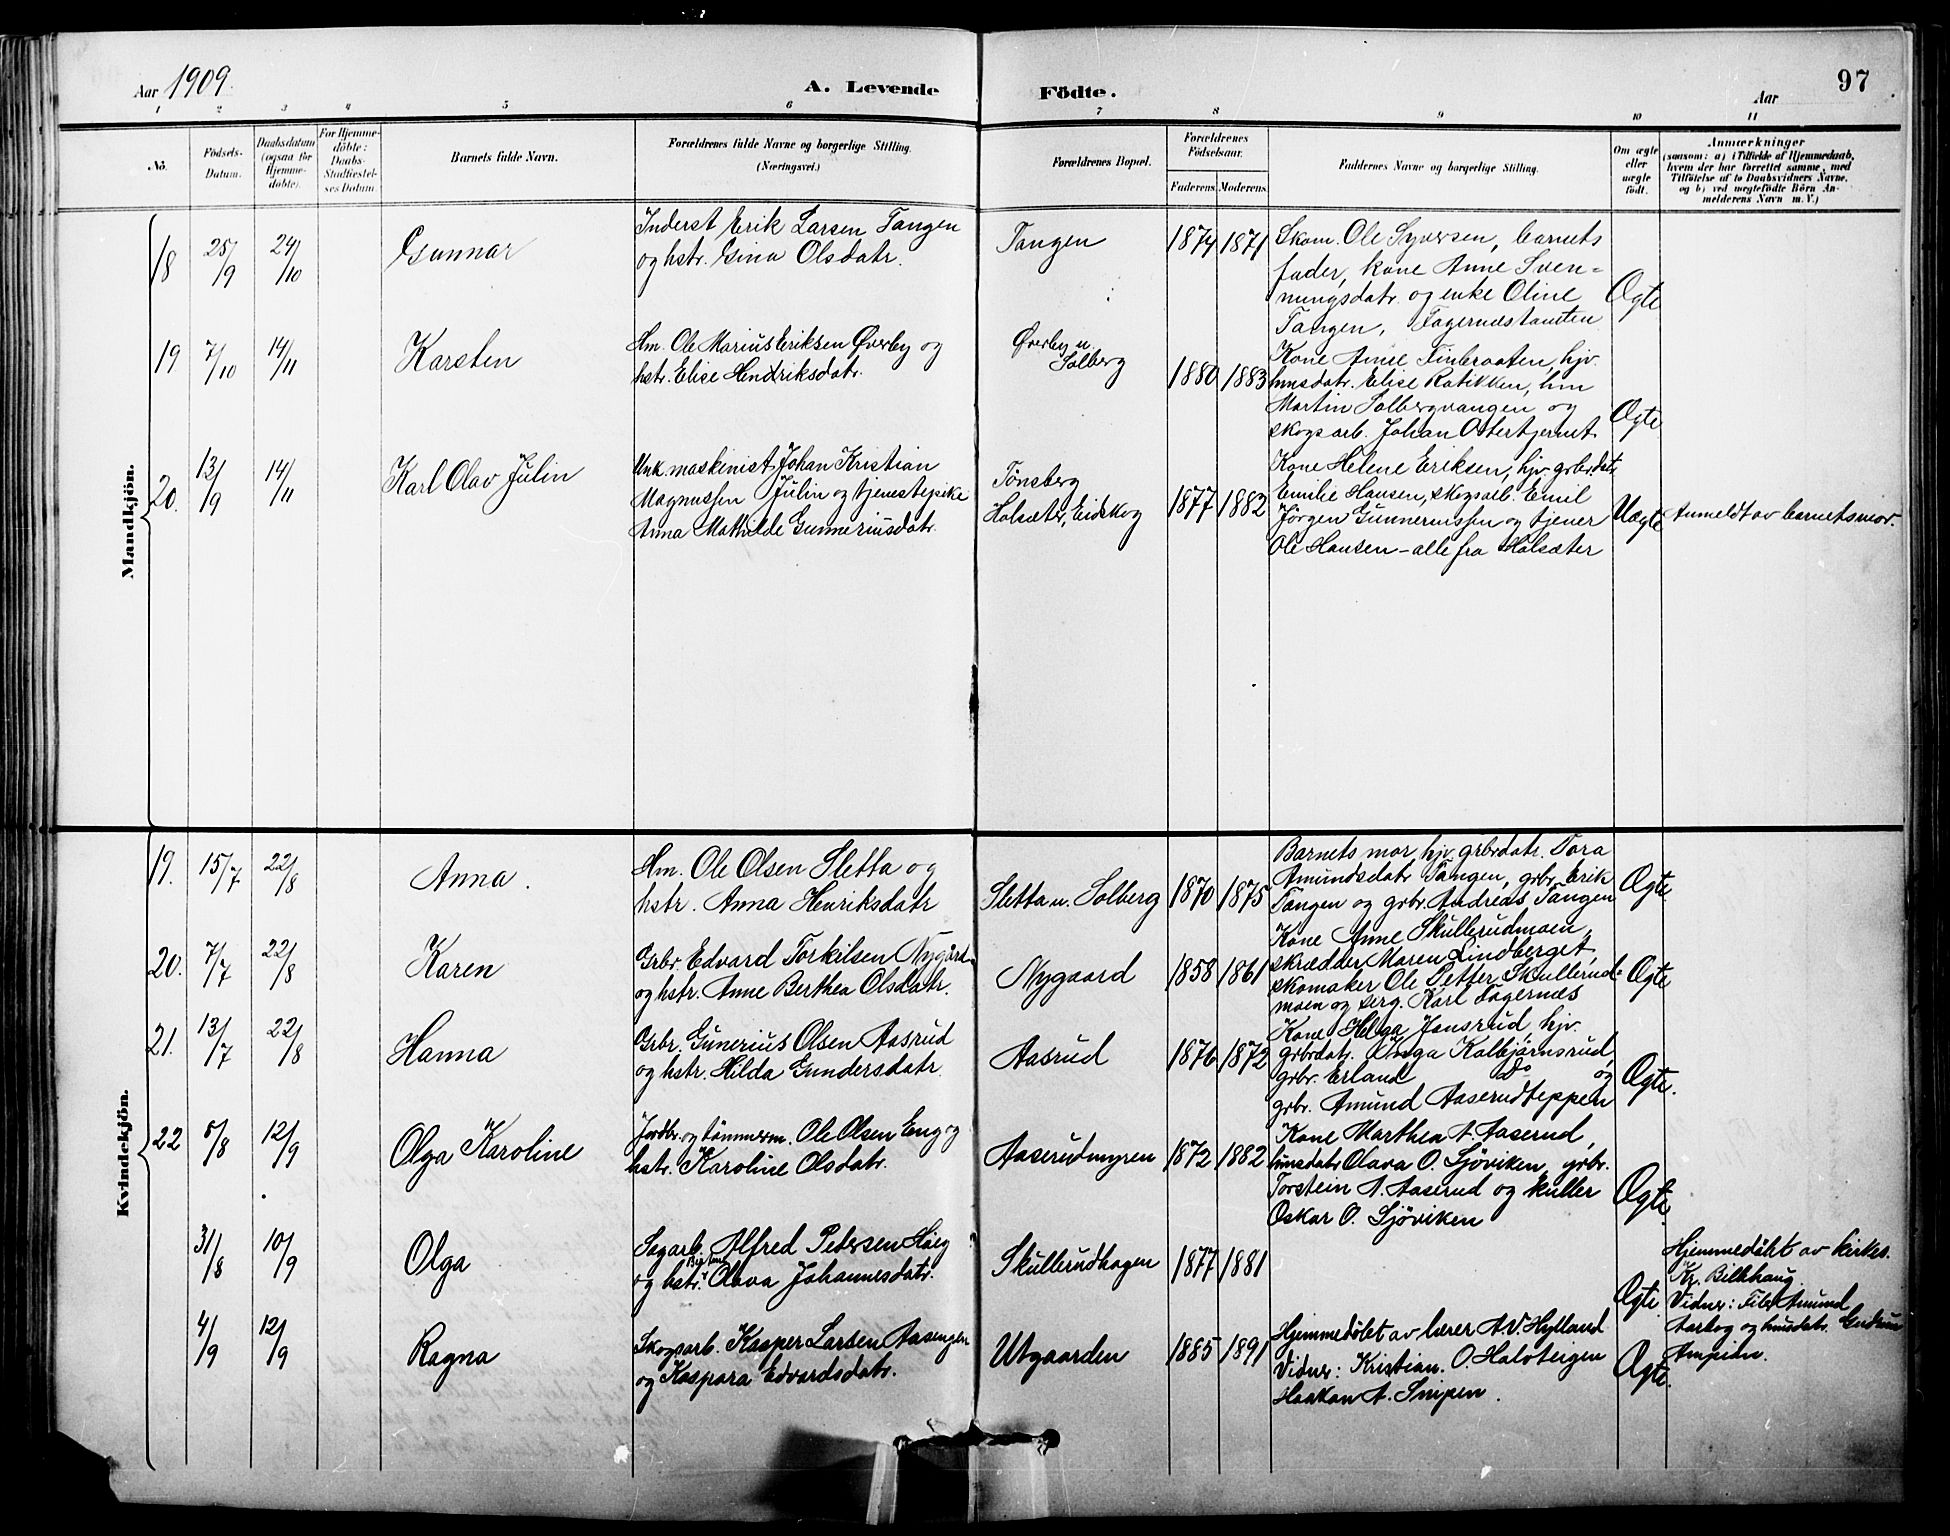 Aar 1909.
A. Levende
Födte.
Aar
97
1 2 3 4 5 6 7 8 9 10 11
No.
Födsels-
Datum.
Daabsdatum
(ogsaa for
Hjemme-
døbte).
For Hjemme-
døbte:
Daabs-
Stadfæstel-
ses Datum
Barnets fulde Navn.
Forældrenes fulde Navne og borgerlige Stilling.
(Næringsvei.)
Forældrenes Bopæl.
Forældrenes
Födselsaar.
Faderens. Moderens.
Faddernes Navne og borgerlige Stilling.
Om ægte
eller
uægte
født.
Anmærkninger
(saasom: a) i Tilfælde af Hjemmedaab,
hvem der har forrettet samme, med
Tilføielse af to Daabsvidners Navne,
og b) ved uægtefødte Börn An-
melderens Navn m. V.)
Mandkjön.
18 25/9 24/10 Gunnar
Inderst Erik Larsen Tangen
og hstr. Gina Olsdatr.
Tangen
1874 1871
Skom. Ole Syversen, barnets
fader, kone Anne Sven=
nungsdatr. og enke Oline
Tangen, Fagernæstomten
Ægte
19 7/10 14/11 Karsten
Hm. Ole Marius Eriksen Øverby og
hstr. Elise Hendriksdatr.
Øverby u.
Solberg
1880 1883
Kone Anne Finbraaten, hjv.
husdatr. Elise Ratikken, hm
Martin Solbergvangen og
skogsarb. Johan Ostertjernet
Ægte
20. 13/9 14/11 Karl Olav Julin
Unk. maskinist Johan Kristian
Magnussen Julin og tjenestepike
Anna Mathilde Gunneriusdatr.
Tønsberg
Holsæter, Eidskog
1877 1882
Kone Helene Eriksen, hjv. grbrdatr
Emilie Hansen, skogsarb. Emil
Jörgen Gunneriussen og tjener
Ole Hansen - alle fra Holsæter
Uægte
Anmeldt av barnets mor.
Kvindekjön.
19. 15/7 22/8 Anna.
Hm. Ole Olsen Sletta og
hstr. Anna Henriksdatr
Sletta u. Solberg
1870 1875
Barnets mor, hjv. grbrdatr. Tora
Amundsdatr Tangen, grbr. Erik
Tangen og grbr. Andreas Tangen
Ægte
20. 7/7 22/8 Karen
Grbr. Edvard Torkilsen Nygård
og hstr. Anne Berthea Olsdatr.
Nygaard
1858 1861
Kone Anne Skullerudmoen,
skrædder Maren Lindberget,
skomaker Ole Petter Skullerud=
moen og serg. Karl Fagernæs
Ægte
21. 13/7 22/8 Hanna
Grbr. Gunerius Olsen Aasrud
og hstr. Hilda Gundersdatr.
Aasrud
1876 1872
Kone Helga Jansrud, hjv.
grbrdatr. Inga Kolbjørnsrud,
grbr. Erland do og
grbr. Amund Aaserudteppen
Ægte.
22 5/8 12/9 Olga Karoline
Jordbr. og tömmerm. Ole Olsen Eng og
hstr. Karoline Olsdatr.
Aaserudmyren
1872 1882
Kone Marthea A. Aaserud,
husdatr Olava O. Sjöviken, grbr.
Torstein A. Aaserud og kuller
Oskar O. Sjöviken
Ægte.
31/8 10/9 Olga
Sagarb. Alfred Petersen Høieg
og hstr. Olava Johannesdatr.
Skullerudhagen
1877 1881
Ægte
Hjemmedøbt av kirkes.
Kr. Bilkhaug.
Vidner: Amund
og husdatr. Gudrun
4/9 12/9 Ragna
Skogsarb. Kasper Larsen Aasengen
og Kaspara Edvardsdatr.
Utgaarden
1885 1891
Hjemmedøbt av lærer A. V. Hylland
Vidner: Kristian O. Halvbergen
Haakon A. Snipen.
Ægte.